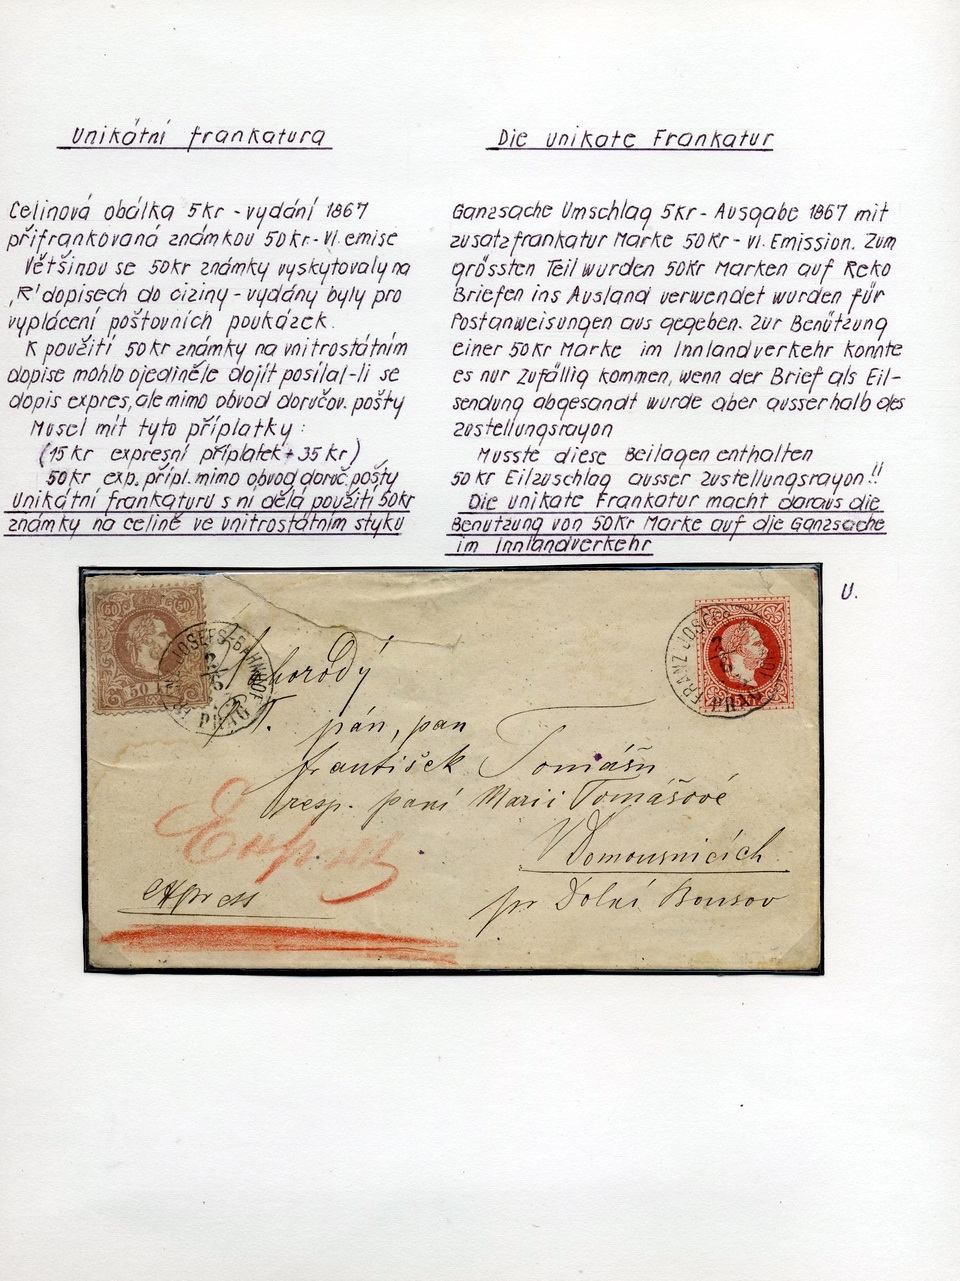 Unikátní frankatura
Celinová obálka 5Kr - vydání 1867
přifrankovaná známkou 50Kr. - VI. emise
Většinou se 50Kr známky vyskytovaly na
„R' dopisech do ciziny - vydány byly pro
vyplácení poštovních poukázek.
K použití 50Kr známky na vnitrostátním
dopise mohlo ojediněle dojít posílal-li se
dopis expres, ale mimo obvod doručov. pošty
Musel mít tyto příplatky :
(15 Kr expresní příplatek + 35 kr)
50Kr exp. přípl. mimo obvod doruč. pošty
Unikátní frankaturu s ní dělá použití 50Kr
známky na celině ve vnitrostátním styku
Die unikate Frankatur
Ganzsache Umschlag 5Kr - Ausgabe 1867 mit
zusatzfrankatur Marke 50Kr - VI. Emission. Zum
grössten Teil wurden 50Kr Marken auf Reko
Briefen ins Ausland verwendet wurden für
Postanweisungen aus gegeben. Zur Benützung
einer 50Kr Marke im Innlandverkehr konnte
es nur zufällig kommen, wenn der Brief als Eil-
sendung abgesandt wurde aber ausserhalb des
zustellungsrayon
Musste diese Beilagen enthalten
50Kr Eilzuschlag ausser zustellungsrayon!!
Die unikate Frankatur macht daraus die
Benutzung von 50Kr Marke auf die Ganzsache
im Innlandverkehr
U.
50 50
50
FRANZ JOSEFS-BAHNHOF
2
6
PRAG
FRANZ JOSEFS
PRAG
T. pán, pan
František Tomášů
resp. paní Marii Tomášové
V Domousnicích
pr Dolní Bousov
Express
express